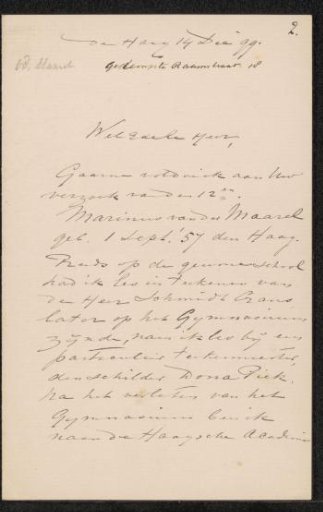 2.
den Haag 14 Dec 99.
68, Maarel
Gedempte Raamstraat 18
WelEdele Heer,
Gaarne voldoe ik aan Uw
verzoek van den 12en.
Marinus van der Maarel
geb. 1 Sept. '57 den Haag.
Reeds op de gewone school
had ik les in teekenen van
de Heer Schmidt Crans
later op het Gymnasium
zijnde, nam ik les bij een
particulier teekenmeester,
den schilder Dona Piek.
Na het verlaten van het
Gymnasium ben ik
naar de Haagsche Academie